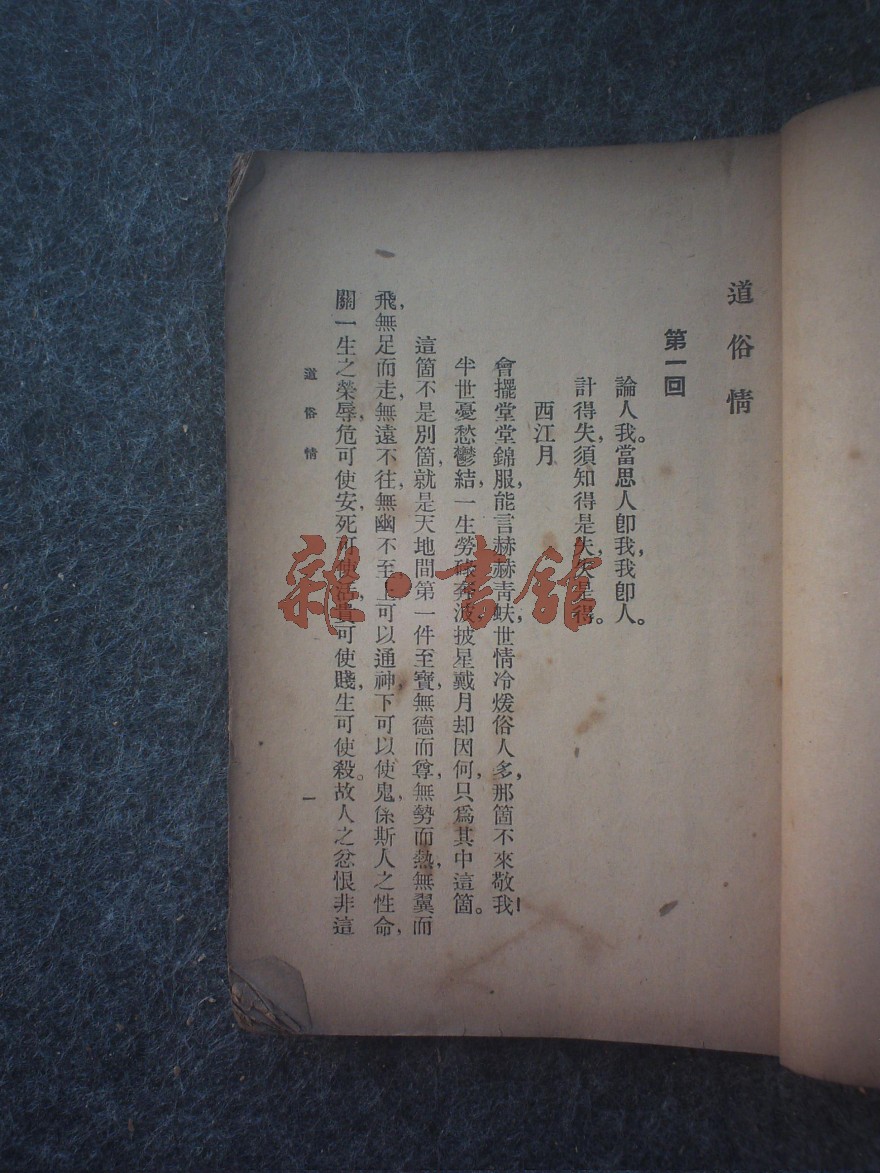 道俗情
第一回
論人我。當思人卽我，我卽人。
計得失，須知得是失，失是得。
西江月
會擺堂堂錦服，能言赫赫靑蚨，世情冷煖俗人多，那箇不來敬我！
半世憂愁鬱結，一生勞碌奔波，披星戴月却因何，只爲其中這箇。
這箇不是別箇，就是天地間第一件至寳，無德而尊，無勢而熱，無翼而
飛，無足而走，無遠不往，無幽不至，上可以通神，下可以使鬼，係斯人之性命，
關一生之榮辱，危可使安，死可使活，貴可使賤，生可使殺。故人之忿恨非這
道俗情
一
雜·書館